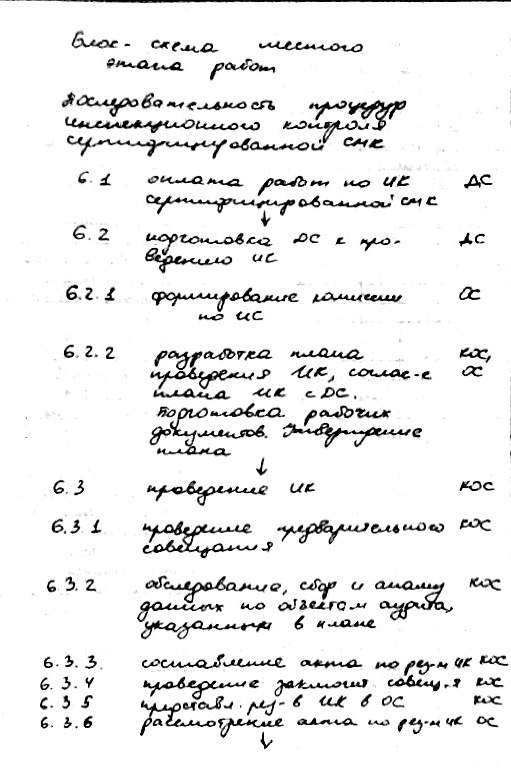 Блок-схема шестого
этапа работ
Последовательность процедур
инспекционного контроля
сертифицированной СМК
6.1 оплата работ по ИК ДС
сертифицированной СМК
↓
6.2 подготовка ДС к про-
ведению ИС ДС
6.2.1 формирование комиссии ОС
по ИС
6.2.2 разработка плана КОС,
проведения ИК, соглас-е ОС
плана ИК с ДС.
Подготовка рабочих
документов. Утверждение
плана
↓
6.3 проведение ИК КОС
6.3.1 проведение предварительного КОС
совещания
6.3.2 обследование, сбор и анализ КОС
данных по объектам аудита,
указанным в плане
6.3.3. составление акта по рез-м ИК КОС
6.3.4 проведение заключит совещ-я КОС
6.3.5 представл. рез-в ИК в ОС КОС
6.3.6 рассмотрение акта по рез-м ИК ОС
↓